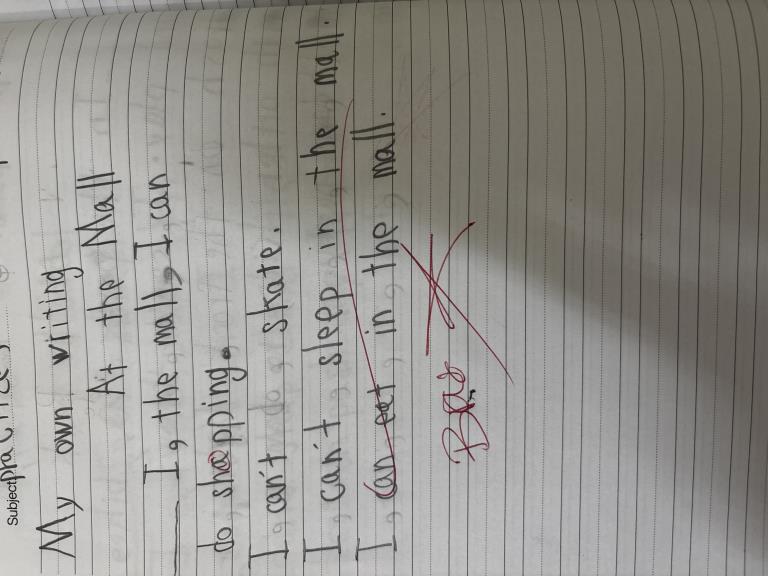 Subject
My own writing
At the Mall
I, the mall, I can
do shopping.
I can't skate.
I can't sleep in the mall.
I can eat in the mall.